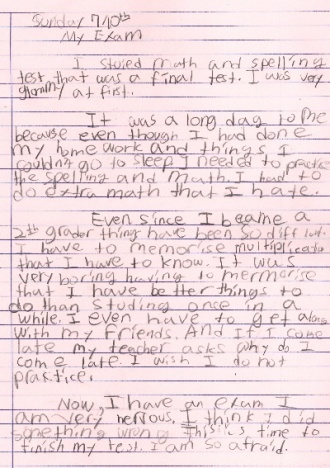 Sunday 7/10th
My Exam
I studed math and spelling
test, that was a final test. I was very
glommy at first.
It was a long day to me
because even though I had done
my home work and things I
couldn't go to sleep I needed to practise
the spelling and Math. I had to
do extra math that I hate.
Even since I became a
2th grader things have been so diff
I have to memorise multiplicate
that I have to know. It was
very boring having to mermorise
that I have better things to
do than studing once in a
while I even have to get along
with my friends. And If I come
late my teacher asks why do I
come late. I wish I do not
prastice.
Now, I have an exam I
am very nervous. I think I did
something wrong this is time to
finish my test. I am so afraid.